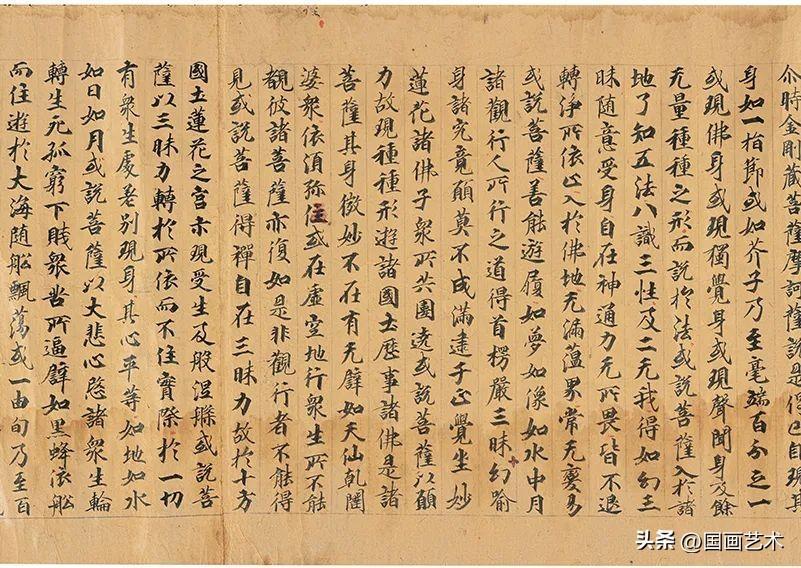 尒時金剛藏菩薩摩訶薩說是偈已自現其
身如一指節或如芥子乃至毫端百分之一
或現佛身或現獨覺身或現聲聞身及餘
无量種種之形而說於法或說菩薩入於諸
地了知五法八識三性及二无我得如幻三
昧随意受身自在神通力无所畏皆不退
轉净所依止入於佛地无漏蕰界常无變易
或說菩薩善能遊履如夢如像如水中月
諸觀行人所行之道得首楞嚴三昧幻喻
身諸究竟願莫不成滿逮于正覺坐妙
蓮花諸佛子衆所共圍遶或說菩薩以願
力故現種種形遊諸國土歷事諸佛是諸
菩薩其身微妙不在有无譬如天仙乹闥
婆衆依須弥住或在虛空地行衆生所不能
覩彼諸菩薩亦復如是非觀行者不能得
見或說菩薩得禪自在三昧力故於十方
國土蓮花之宫示現受生及般涅槃或說菩
薩以三昧力轉於所依而不住實際於一切
有衆生處差別現身其心平等如地如水
如日如月或說菩薩以大悲心愍諸衆生輪
轉生死孤窮下賤衆苦所逼譬如黑蜂依舩
而住遊於大海随舩飄蕩或一由旬乃至百
头条 @国画艺术